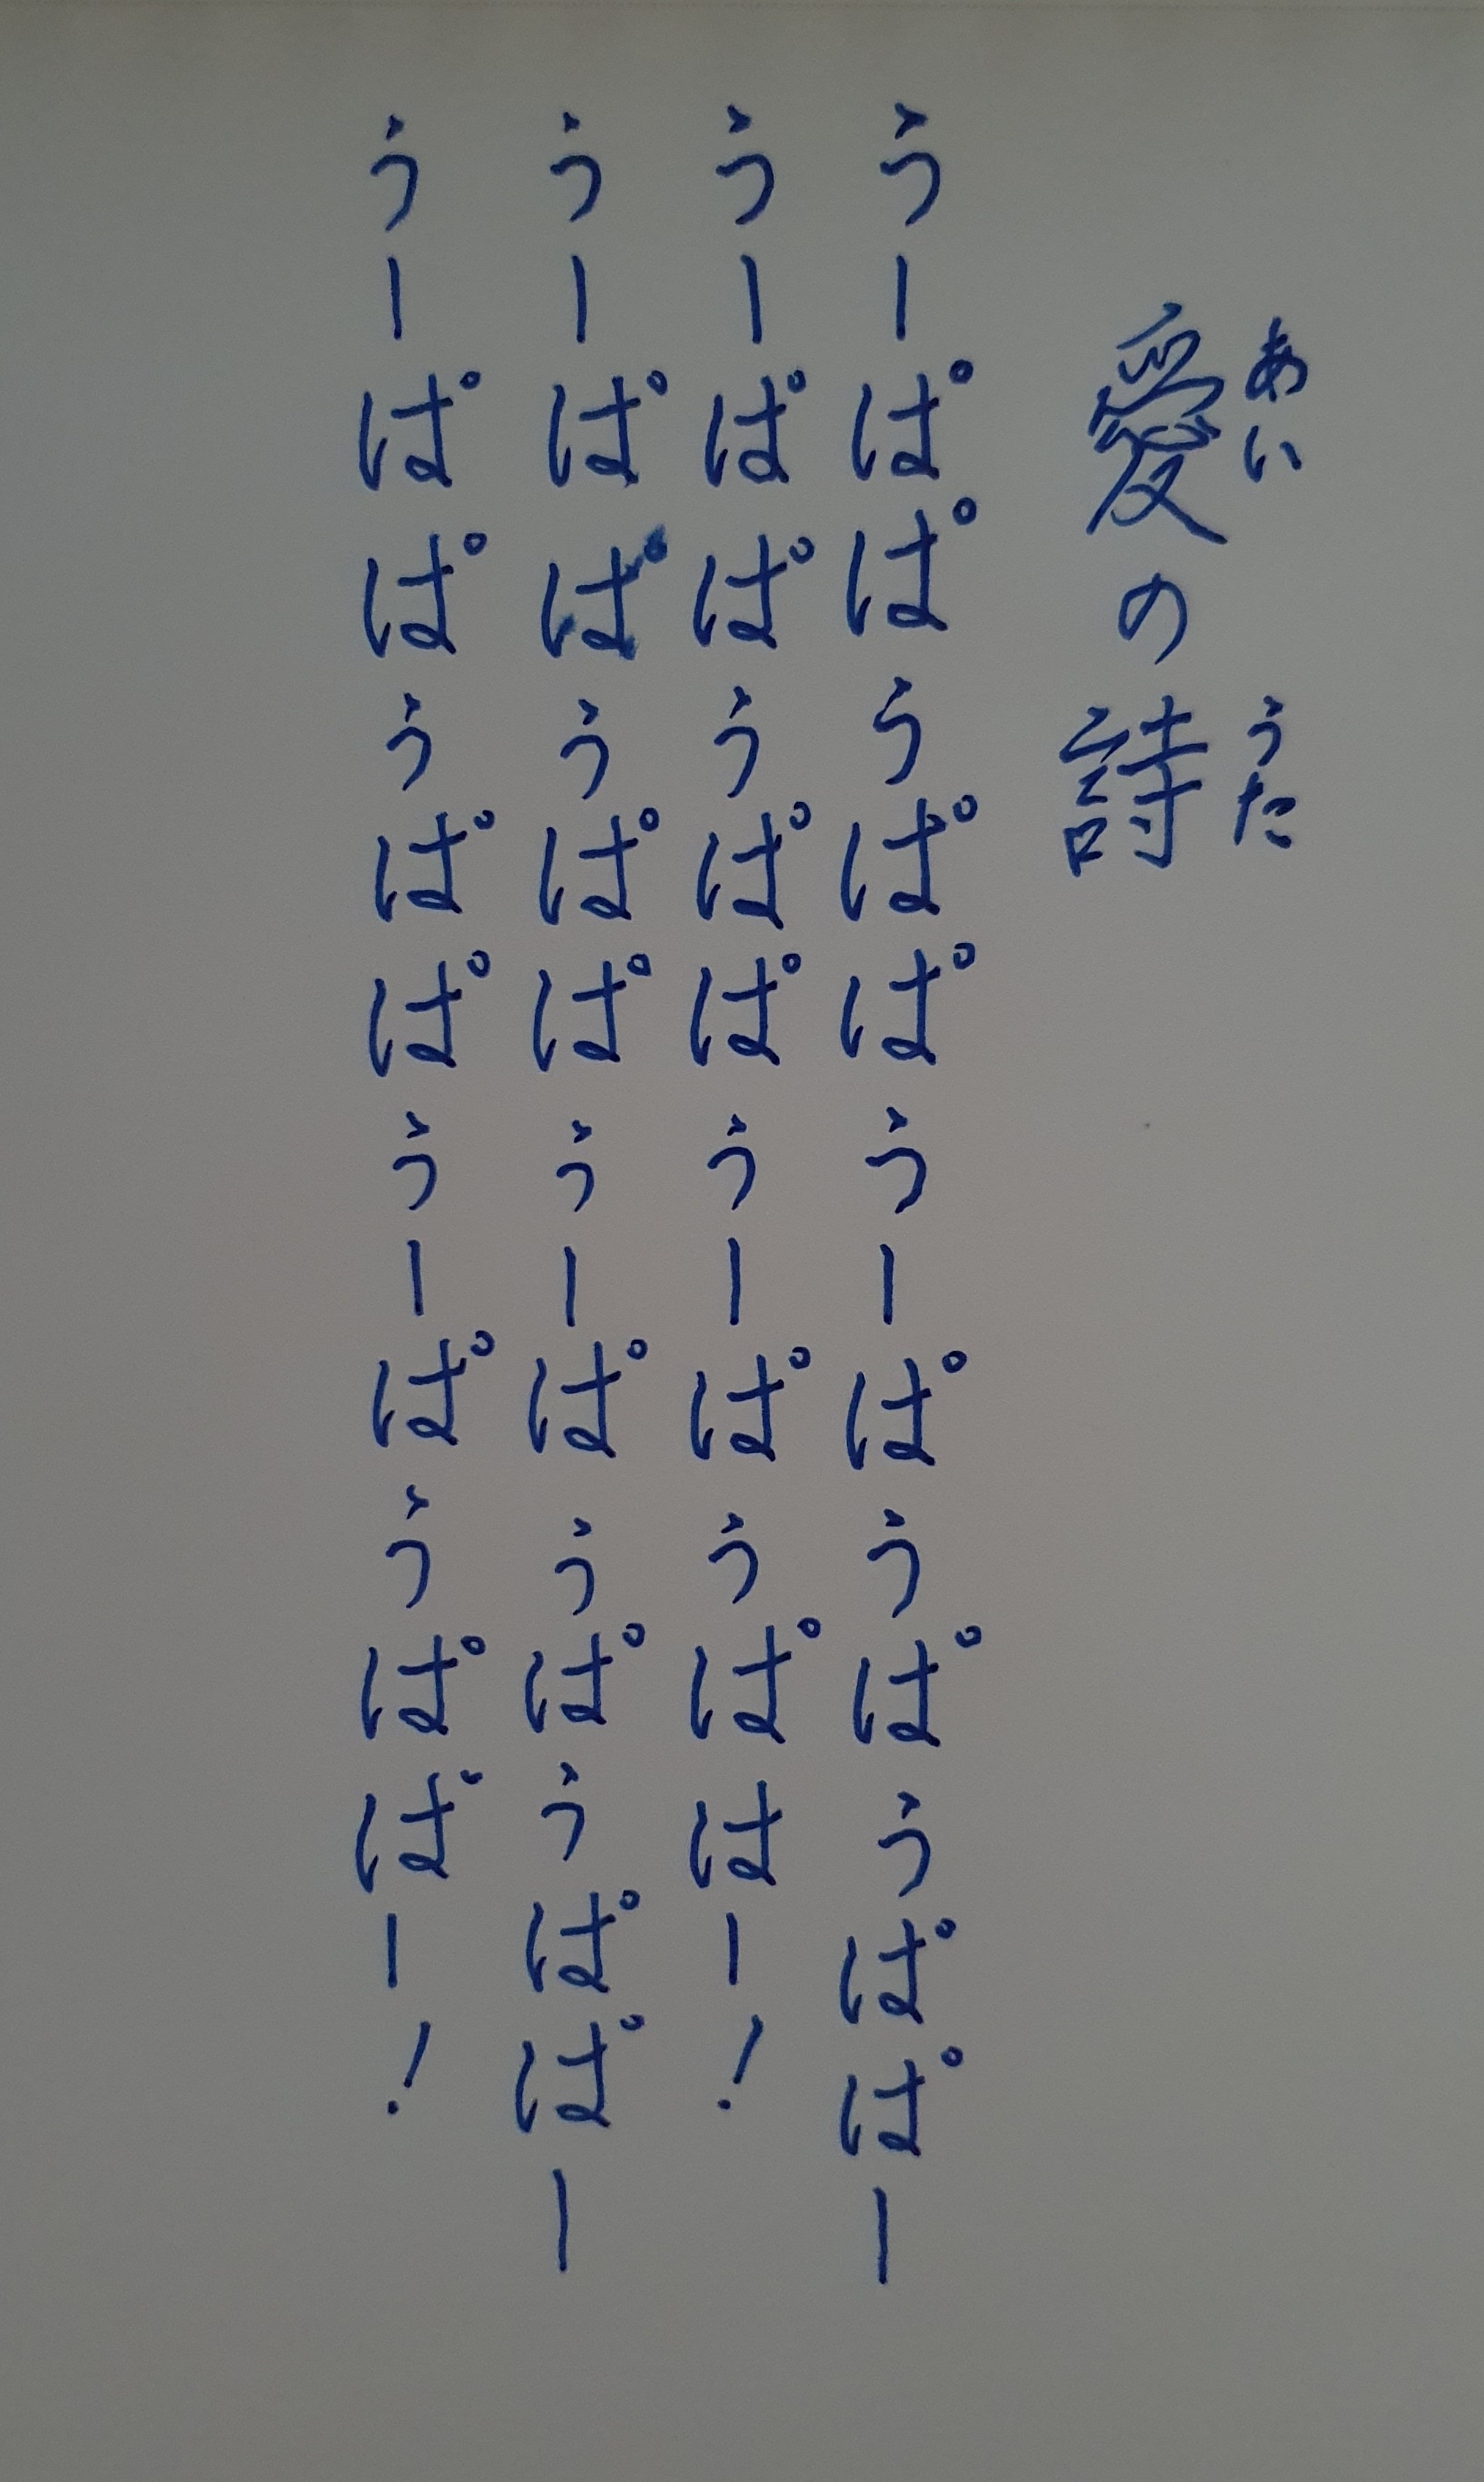 あい うた
愛の詩
うーぱぱうぱぱうーぱうぱうぱぱー
うーぱぱうぱぱうーぱうぱはー!
うーぱぱうぱぱうーぱうぱうぱぱー
うーぱぱうぱぱうーぱうぱばー!